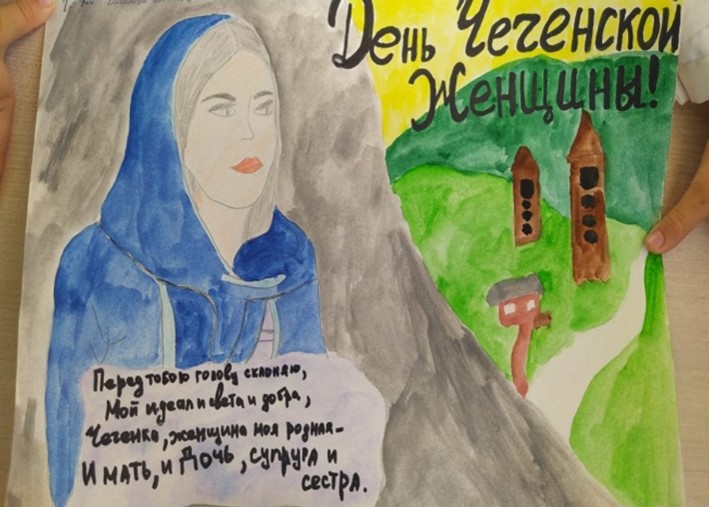 День Чеченской
Женщины!
Перед тобою голову склоняю,
Мой идеал и света и добра,
Чеченка, женщина моя родная-
И мать, и дочь, супруга и
сестра.